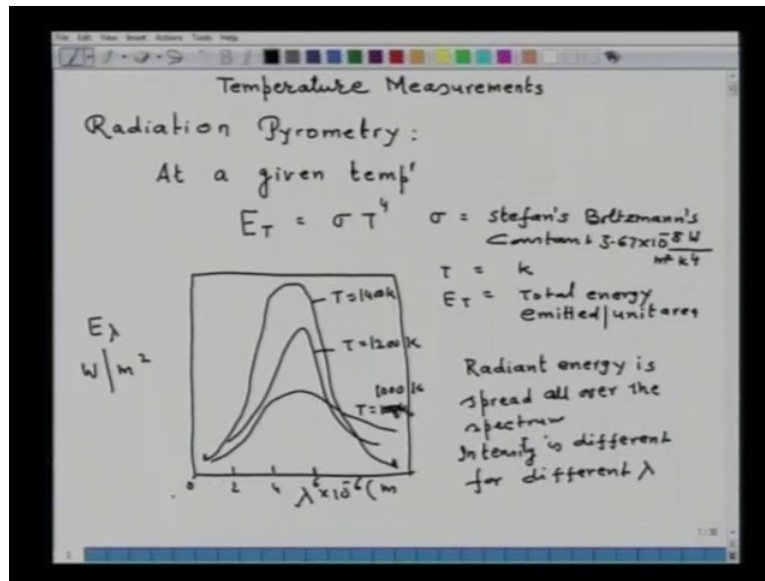 File Edit View Insert Actions Tools Help
Temperature Measurements
Radiation Pyrometry :
At a given temp'
E_T = σ T⁴ σ = Stefan's Boltzmann's
Constant 5.67x10⁻⁸ W
m² k⁴
T = k
E_T = Total energy
emitted/unit area
T = 1400k
T = 1200 k
1000 k
T =
E_λ
W/m²
Radiant energy is
spread all over the
spectrum
Intensity is different
for different λ
0 2 4 6
λ x10⁻⁶ (m
1/20